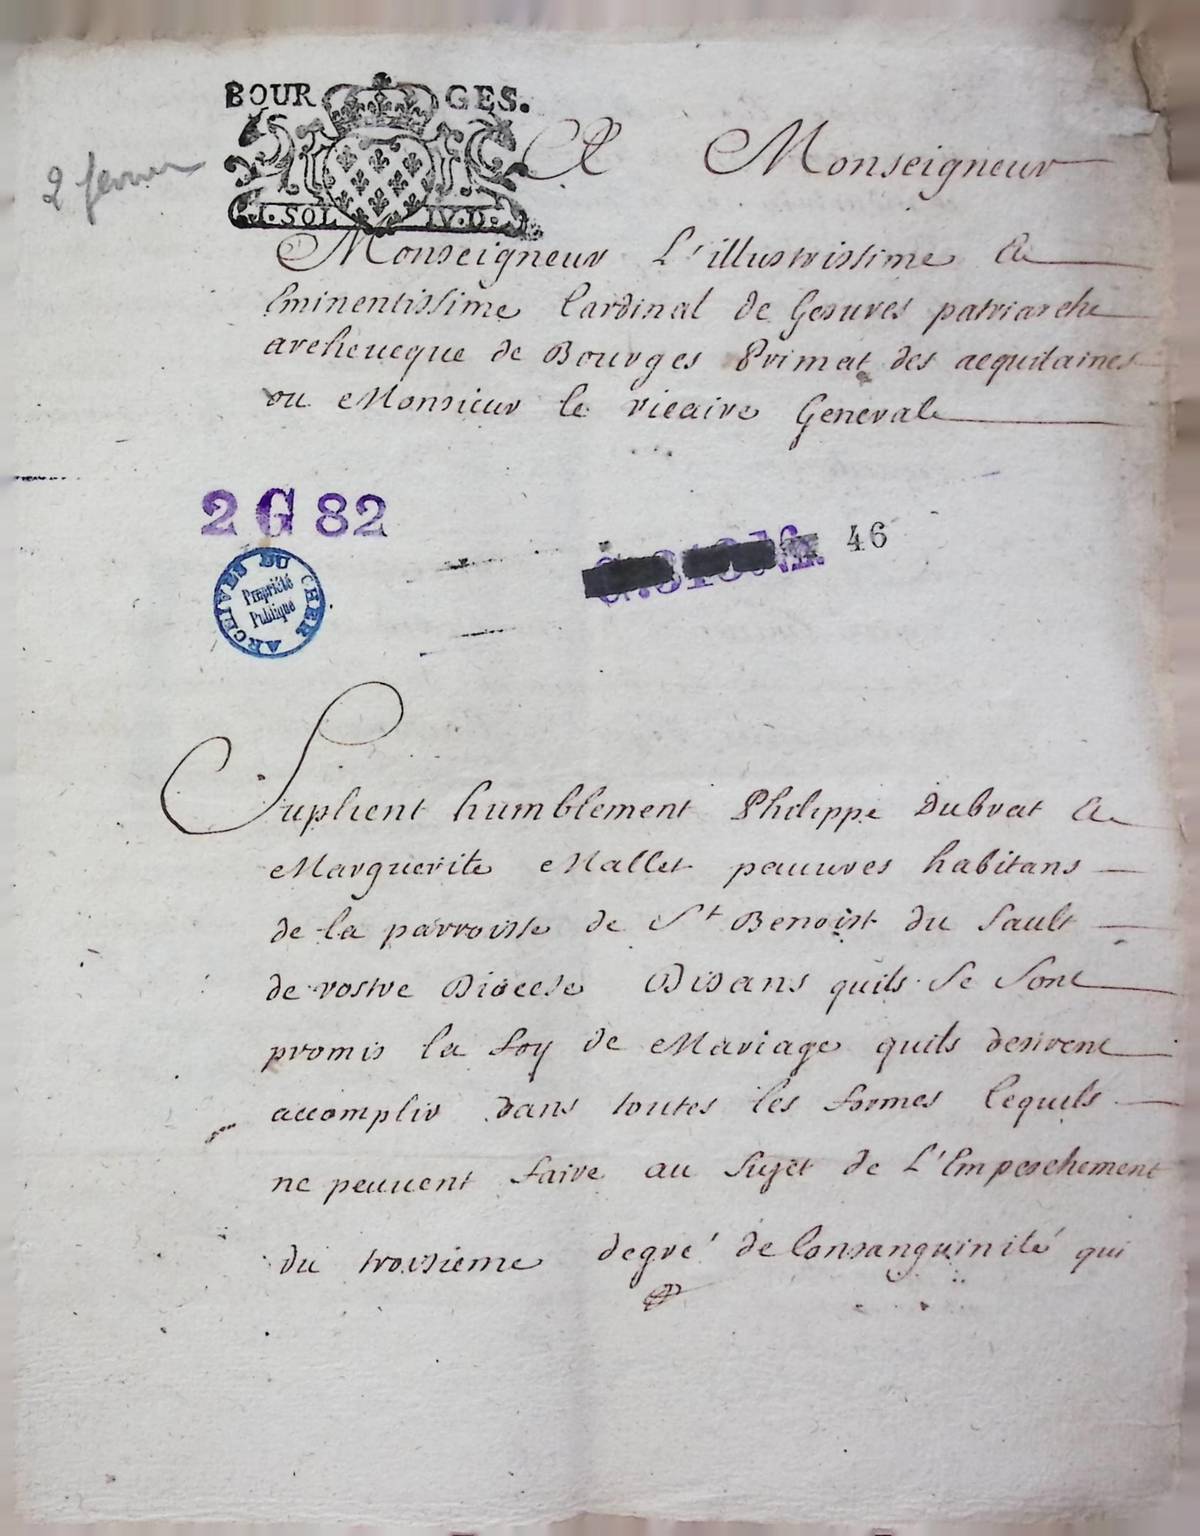 BOURGES.
I. SOL IV. D.
2 fevrier
A Monseigneur
Monseigneur L'illustrissime Et
Eminentissime Cardinal de Gesures patriarche
archeuecque de Bourges Primat des acquitaines
ou Monsieur le vicaire Generale
2 G 82
46
ARCHIVES DU CHER
Propriété
Publique
Suplient humblement Philippe Dubrat Et
Marguerite Mallet pauures habitans
de la parroisse de St Benoist du Sault
de vostre Diocese Disans quils se sont
promis la foy de Mariage quils desirent
accomplir dans toutes les formes lequils
ne peuuent faire au sujet de L'Empeschement
du troisieme degré de Consanguinité qui